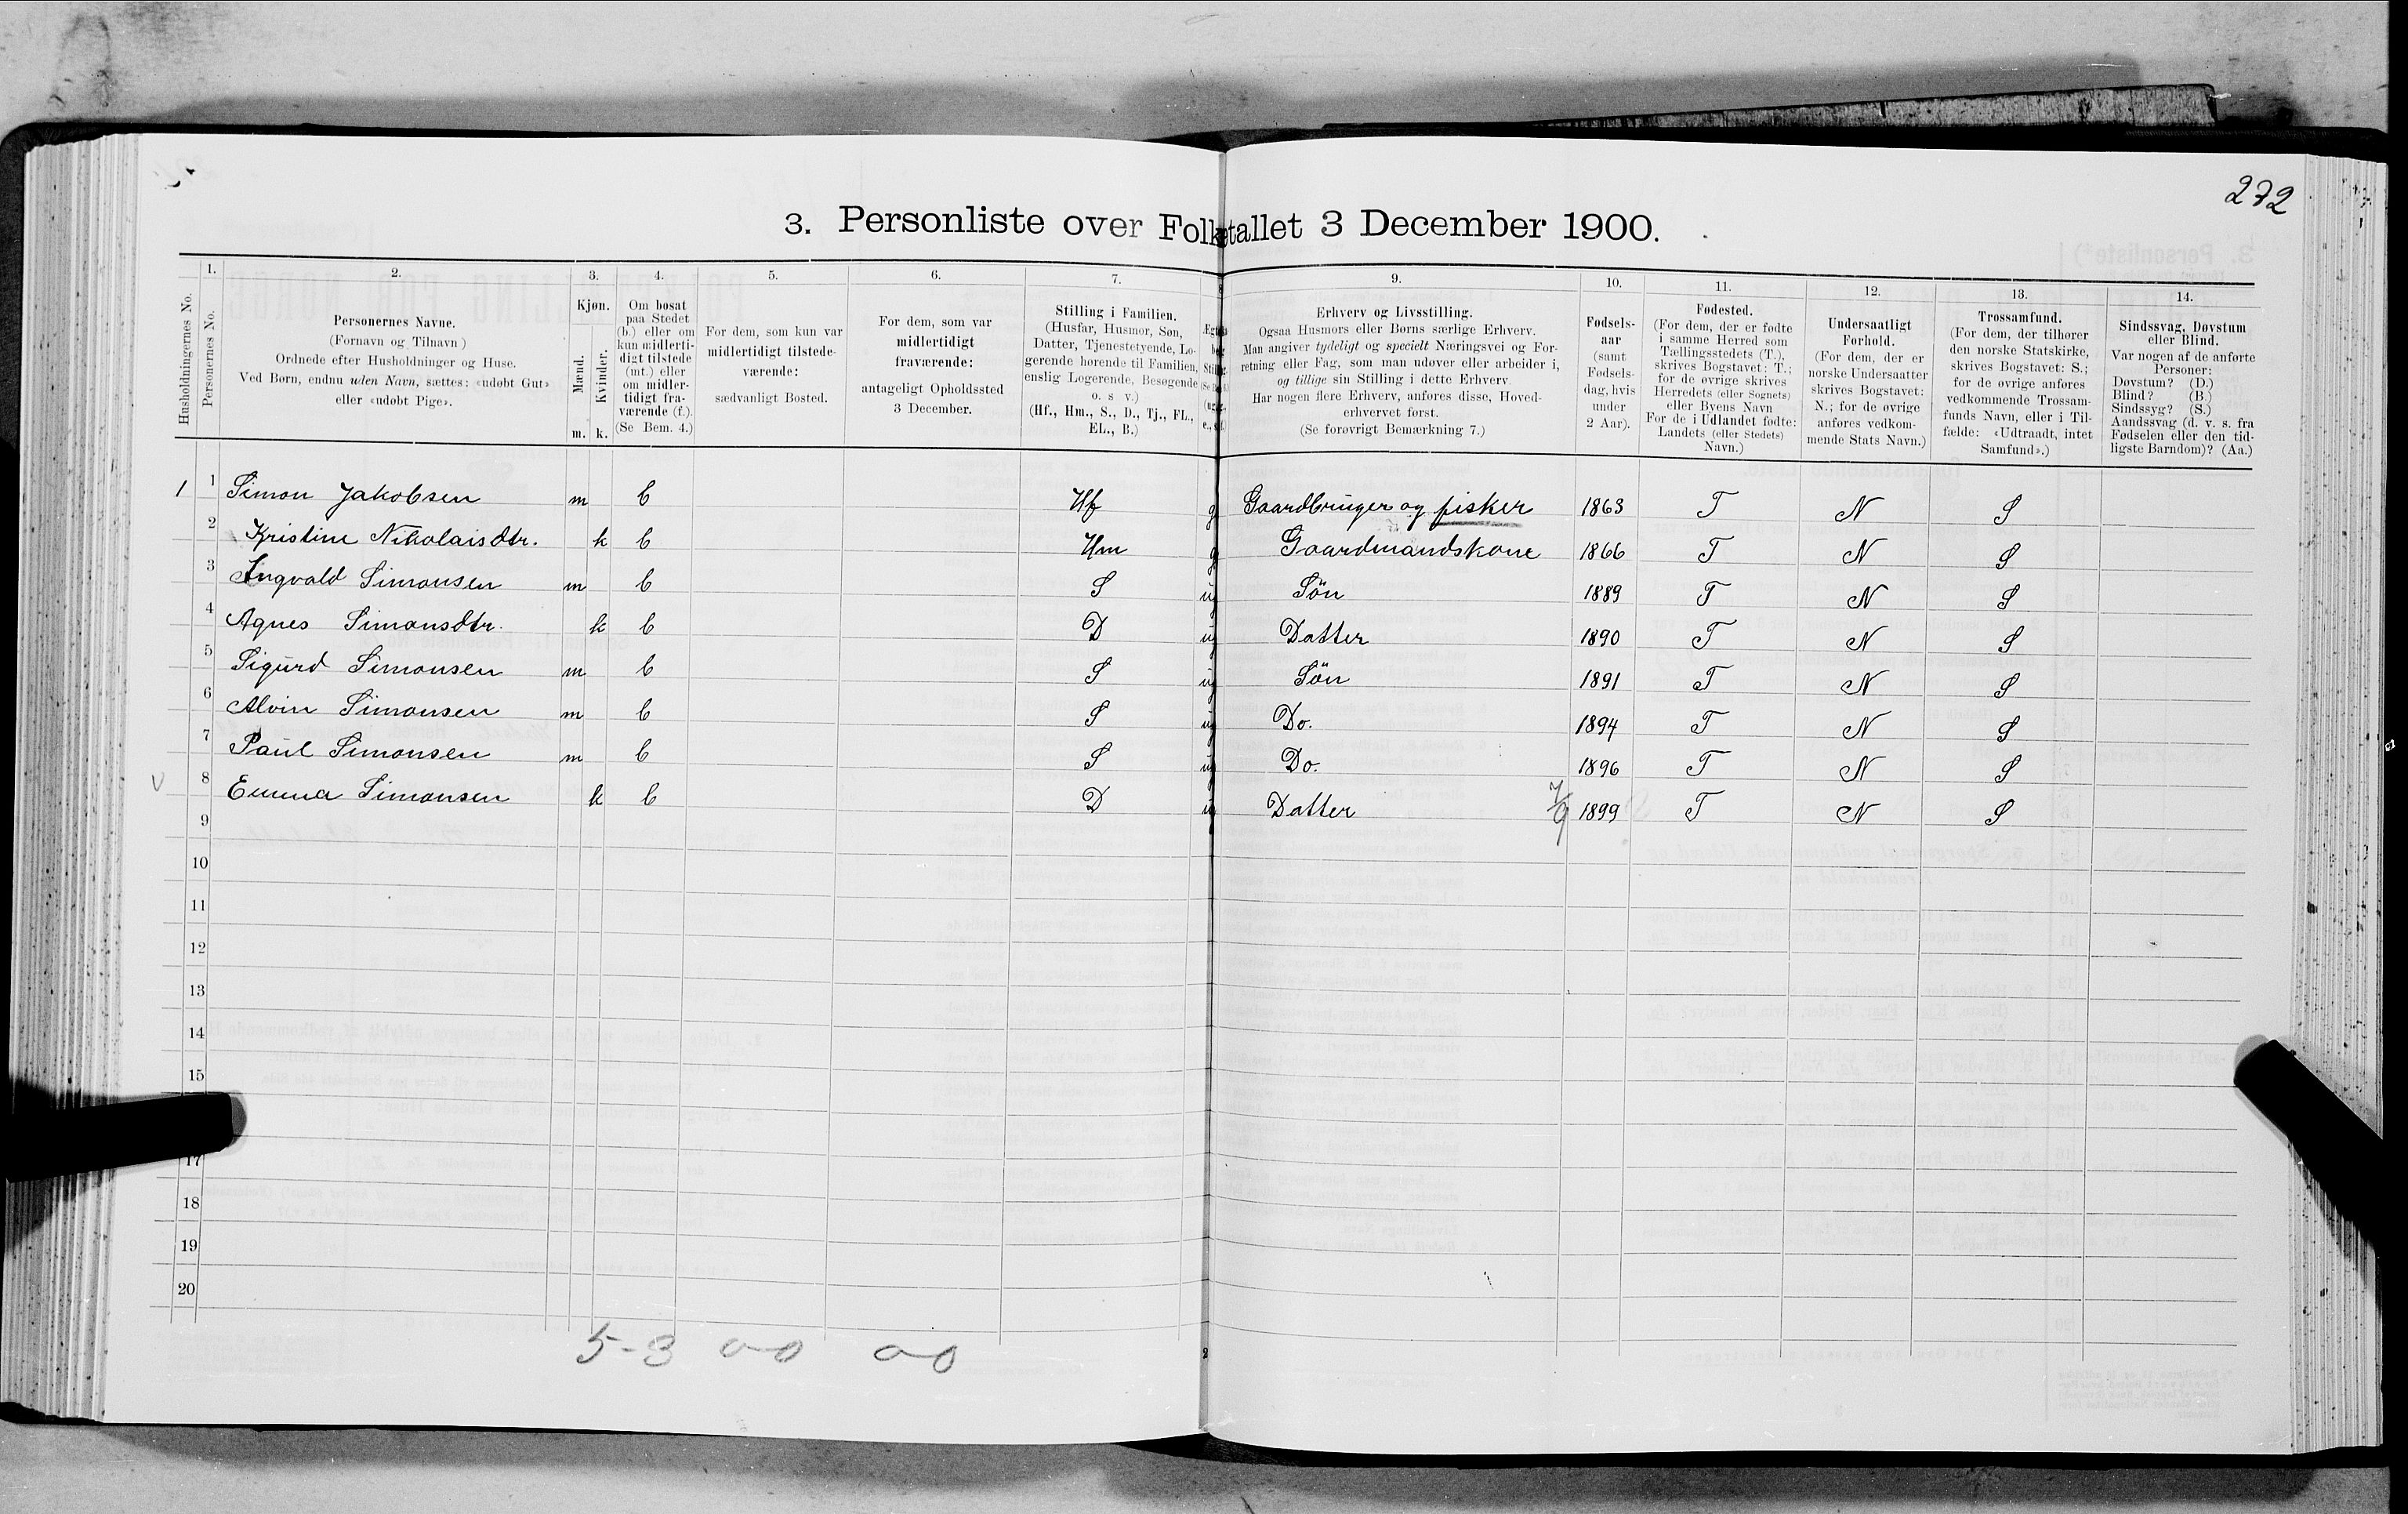 272
3. Personliste over Folketallet 3 December 1900.
Husholdningernes No.
1.
Personernes No.
2.
Personernes Navne.
(Fornavn og Tilnavn)
Ordnede efter Husholdninger og Huse.
Ved Børn, endnu uden Navn, sættes: «udøbt Gut»
eller «udøbt Pige».
3.
Kjøn.
Mænd.
Kvinder.
m. k.
4.
Om bosat
paa Stedet
(b.) eller om
kun midlerti-
digt tilstede
(mt.) eller
om midler-
tidigt fra-
værende (f.).
(Se Bem. 4.)
5.
For dem, som kun var
midlertidigt tilstede-
værende:
sædvanligt Bosted.
6.
For dem, som var
midlertidigt
fraværende:
antageligt Opholdssted
3 December.
7.
Stilling i Familien.
(Husfar, Husmor, Søn,
Datter, Tjenestetyende, Lo-
gerende hørende til Familien,
enslig Logerende, Besøgende
o. s v.)
(Hf., Hm., S., D., Tj., FL.,
EL., B.)
9.
Erhverv og Livsstilling.
Ogsaa Husmors eller Børns særlige Erhverv.
Man angiver tydeligt og specielt Næringsvei og For-
retning eller Fag, som man udøver eller arbeider i,
og tillige sin Stilling i dette Erhverv.
Har nogen flere Erhverv, anføres disse, Hoved-
erhvervet først.
(Se forøvrigt Bemærkning 7.)
10.
Fødsels-
aar
(samt
Fødsels-
dag, hvis
under
2 Aar).
11.
Fødested.
(For dem, der er fødte
i samme Herred som
Tællingsstedets (T.),
skrives Bogstavet: T.;
for de øvrige skrives
Herredets (eller Sognets)
eller Byens Navn
For de i Udlandet fødte:
Landets (eller Stedets)
Navn.)
12.
Undersaatligt
Forhold.
(For dem, der er
norske Undersaatter
skrives Bogstavet:
N.; for de øvrige
anføres vedkom-
mende Stats Navn.)
13.
Trossamfund.
(For dem, der tilhører
den norske Statskirke,
skrives Bogstavet: S.;
for de øvrige anføres
vedkommende Trossam-
funds Navn, eller i Til-
fælde: «Udtraadt, intet
Samfund».)
14.
Sindssvag, Døvstum
eller Blind.
Var nogen af de anførte
Personer:
Døvstum? (D.)
Blind? (B.)
Sindssyg? (S.)
Aandssvag (d. v. s. fra
Fødselen eller den tid-
ligste Barndom)? (Aa.)
1 1 Simon Jakobsen m b Hf g Gaardbruger og fisker 1863 T N S
2 Kristine Nikolaisdtr. k b Hm g Gaardmandskone 1866 T N S
3 Ingvald Simonsen m b S ug Søn 1889 T N S
4 Agnes Simonsdtr. k b D ug Datter 1890 T N S
5 Sigurd Simonsen m b S ug Søn 1891 T N S
6 Alvin Simonsen m b S ug Do. 1894 T N S
7 Paul Simonsen m b S ug Do. 1896 T N S
8 Emma Simonsen k b D ug Datter 7/9 1899 T N S
9
10
11
12
13
14
15
17
18
19
20
5-3 0-0 0-0